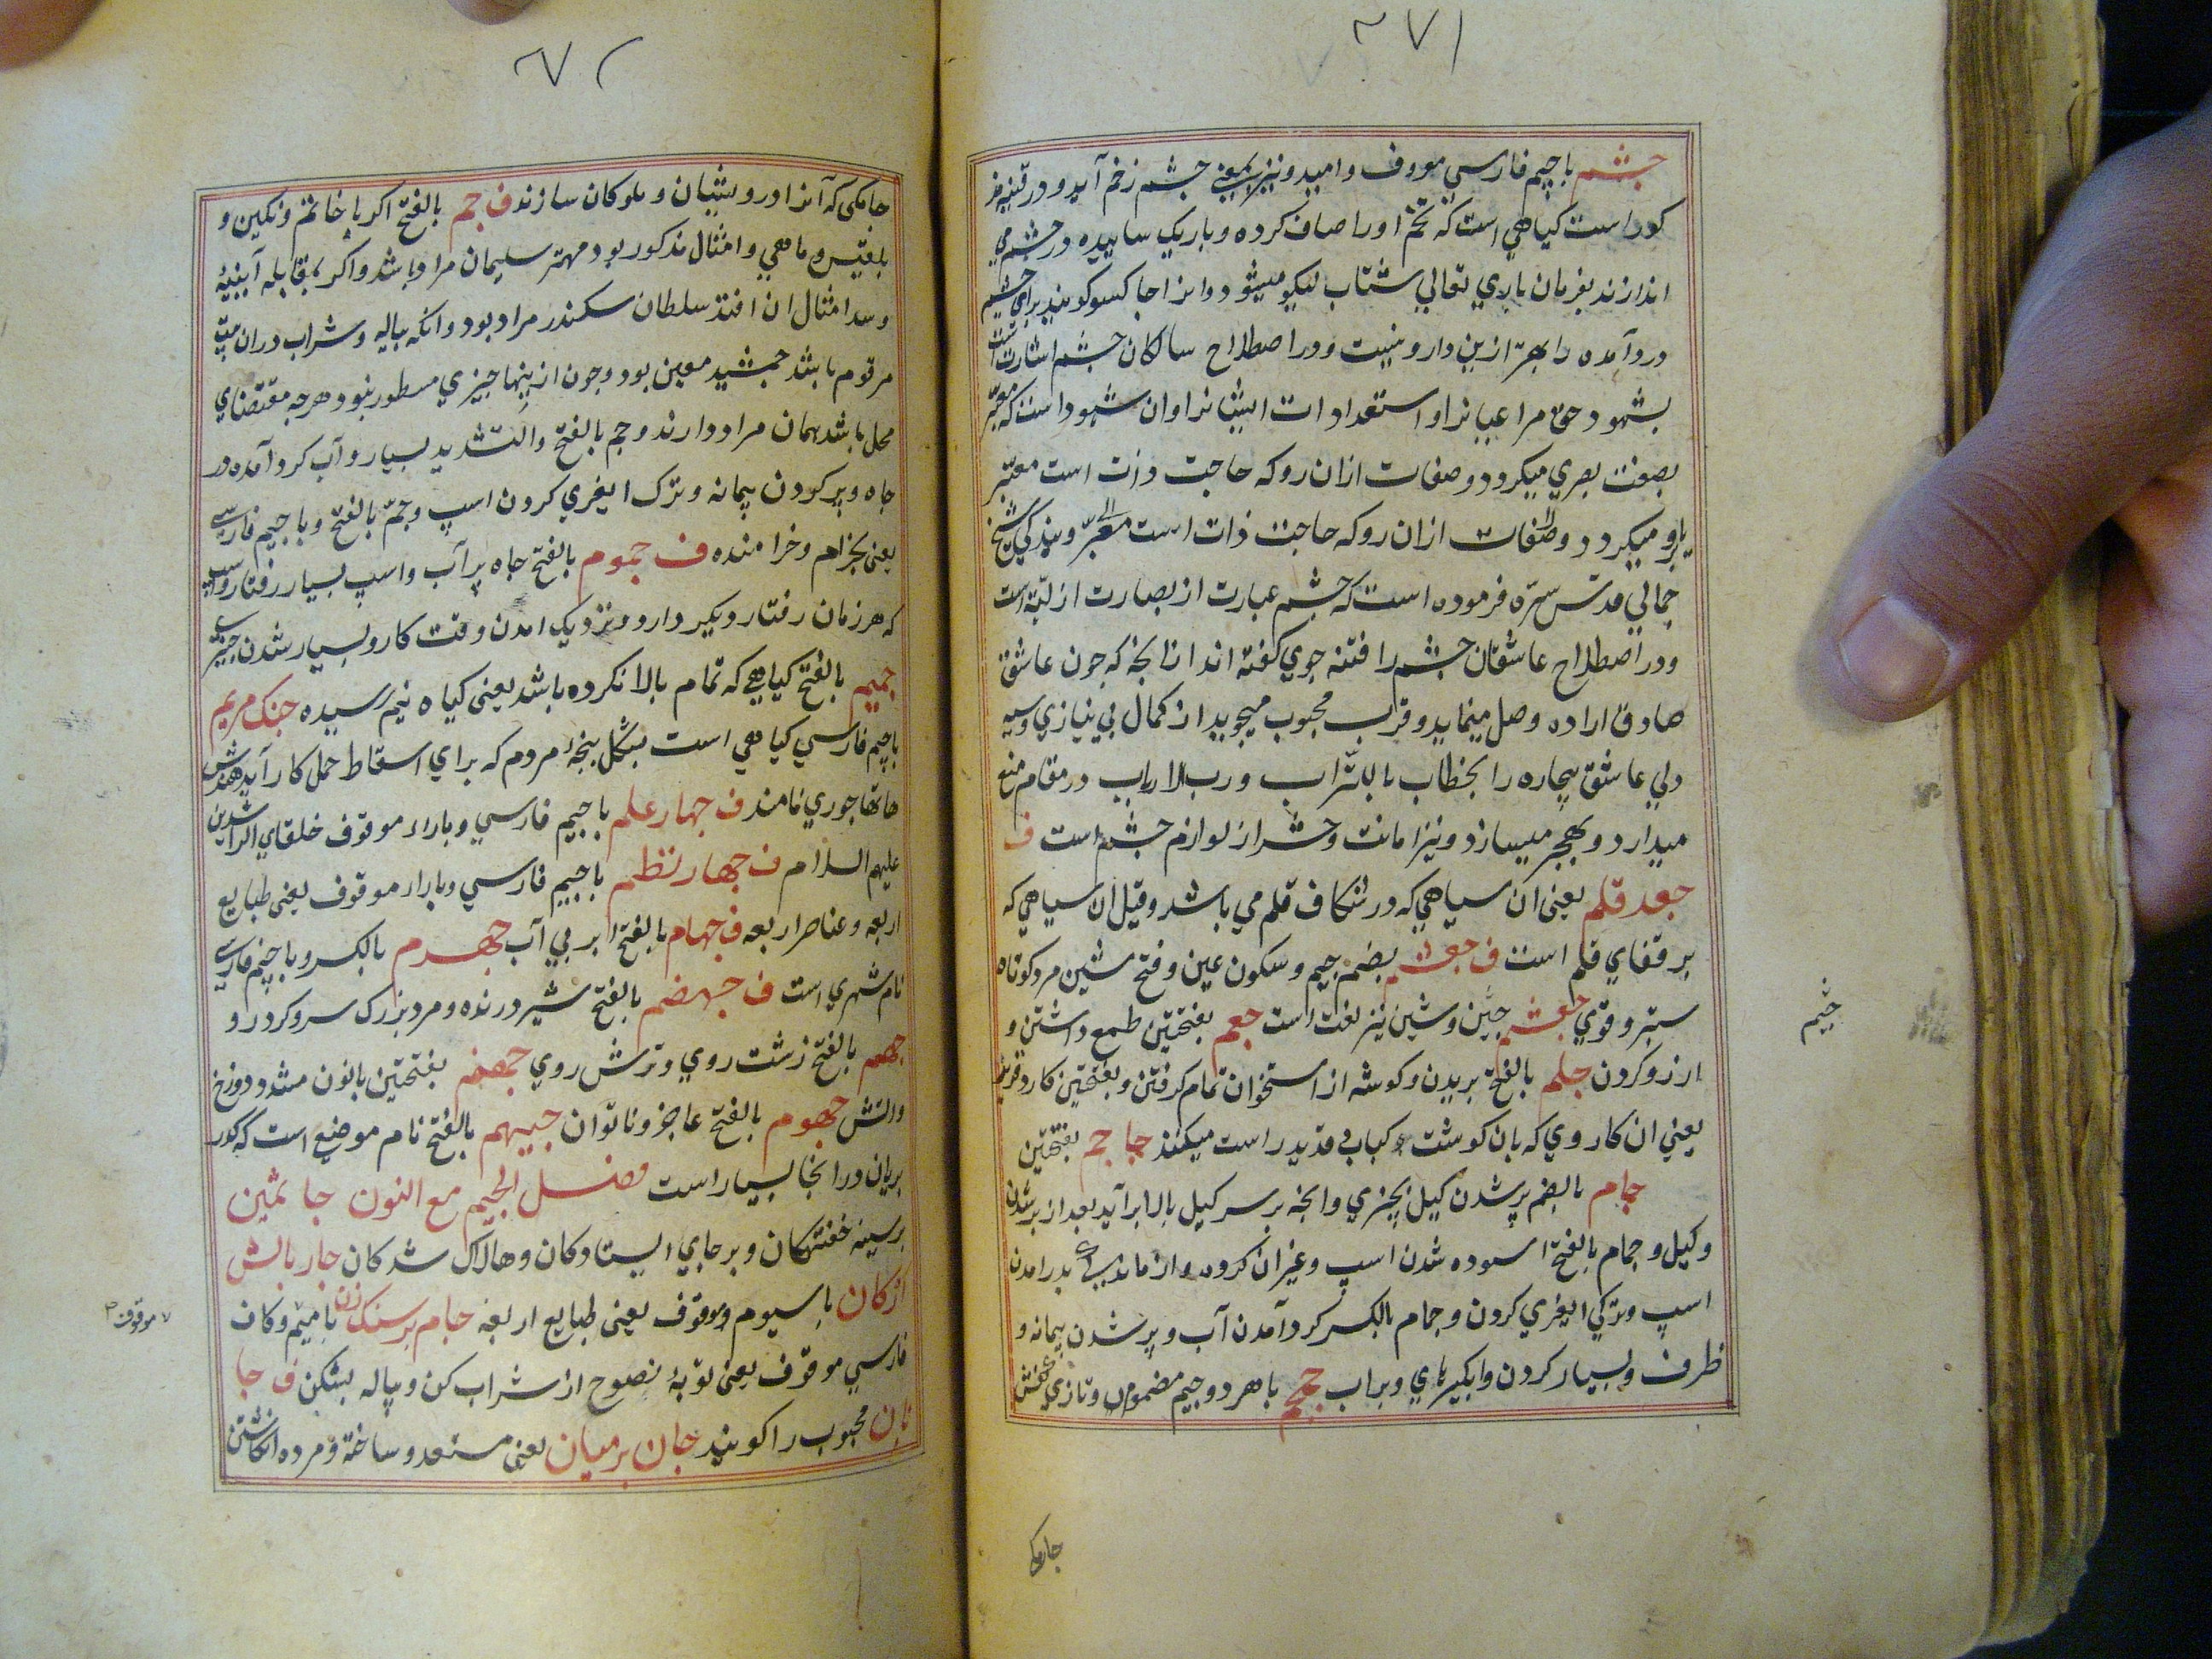 ۲۷۱
چشم باجیم فارسی معروف وامید ونیز بمعنی چشم زخم آید ودر قنیه
کوراست کیاهی است که تخم اورا صاف کرده وباریک ساییده در چشم می
اندازند بفرمان باری تعالی شتاب نیکو میشود وانرا جاکسو کویند برای چشم
درد آمده را بهتر ازین دارو نیست ودر اصطلاح سالکان چشم اشارت است
بشهود حق مراعیانرا واستعدادات ایشانرا وان شهود است که معبّر
بصفت بصری میکردد وصفات ازان روکه حاجت ذات است معبّر
میکردد وصفات ازان روکه حاجت ذات است معبّر وبندکی شیخ
جمالی قدس سرّه فرموده است که چشم عبارت از بصارت ازلیّه است
ودر اصطلاح عاشقان چشم را فتنه جوی کفته اند انانجه که چون عاشق
صادق اراده وصل مینماید وقرب محبوب میجوید از کمال بی نیازی
دلی عاشق بیچاره را بخطاب ورب الارباب در مقام منع
میدارد وبهجر میسازد ونیز امانت از لوازم چشم است ف
جعد قلم یعنی ان سیاهی که در شکاف قلم می باشد وقیل ان سیاهی که
بر قفای قلم است ف جعشم بضم جیم وسکون عین وفتح شین مرد کوتاه
ستبر وقوی جعشم وشین نیز لغت است جعم بفتحتین طمع داشتن و
ارزو کردن جلم بالفتح بریدن وکوشه از استخوان تمام کرفتن وبفتحتین کارد
یعنی ان کاردی که بان کوشت کباب قدید راست میکنند جاجم بفتحتین
جام بالضم پر شدن کیل بچیزی وانچه بر سر کیل بالا برآید بعد از پر شدن
وکیل وجمام بالفتح اسوده شدن اسپ وغیر ان کردن واز ماندگی بدر امدن
اسپ وترکی ایغری کردن وجمام بالکسر کرد آمدن آب وپر شدن پیمانه و
ظرف وبسیار کردن وابکیر پراب ججم باهر دو جیم مضموم وتازی
چیم
جامکی
۲۷۲
جامکی که آنرا درویشان وملوکان سازند ف جم بالفتح اکر باخاتم ونکین و
بلقیس وماهی وامثال مذکور بود مهتر سلیمان مراد باشد واکر بمقابله آیینه
وسد امثال ان افتد سلطان سکندر مراد بود وانکه پیاله وشراب دران بیت
مرقوم باشد جمشید معین بود وچون ازینها چیزی مسطور نبود هرچه مقتضای
محل باشد همان مراد دارند وجم بالفتح والتشدید بسیار وآب کرد آمده در
چاه وپر کردن پیمانه وترک ایغری کردن اسپ وچم بالفتح وباجیم فارسی
یعنی بخرام وخرامنده ف جموم بالفتح چاه پر آب واسپ بسیار رفتار
که هر زمان رفتار دیکر دارد ونزدیک امدن وقت کار وبسیار شدن چیزی
جمیم بالفتح کیاهی که تمام بالا نکرده باشد یعنی کیاه نیم رسیده جنک مریم
باجیم فارسی کیاهی است بشکل پنجۀ مردم که برای اسقاط حمل کار آید
هاتهاجوری نامند ف چهار علم باجیم فارسی وباراء موقوف خلفای الراشدین
علیهم السلام ف چهار نظم باجیم فارسی وباراء موقوف یعنی طبایع
اربعه وعناصر اربعه ف جهام بالفتح ابر بی آب جهرم بالکسر وباجیم فارسی
نام شهری است ف جهضم بالفتح شیر درنده ومرد بزرک سر وکرد رو
جهم بالفتح زشت روی وترش روی جهنم بفتحتین بانون مشدد دوزخ
واتش جهوم بالفتح عاجز وناتوان جیهم بالفتح نام موضع است که
بریان درانجا بسیار است فصل الجیم مع النون جاثمین
برسینه خفتهکان وبرجای ایستادکان وهلاک شدکان چار بالش
ارکان باسیوم موقوف یعنی طبایع اربعه جام بر سنک زن بامیم وکاف
فارسی موقوف یعنی توبۀ نصوح از شراب کن وپیاله بشکن ف جا
نان محبوب را کویند جان بر میان یعنی مستعد وساخته ومرده انکاشتن
موقوف